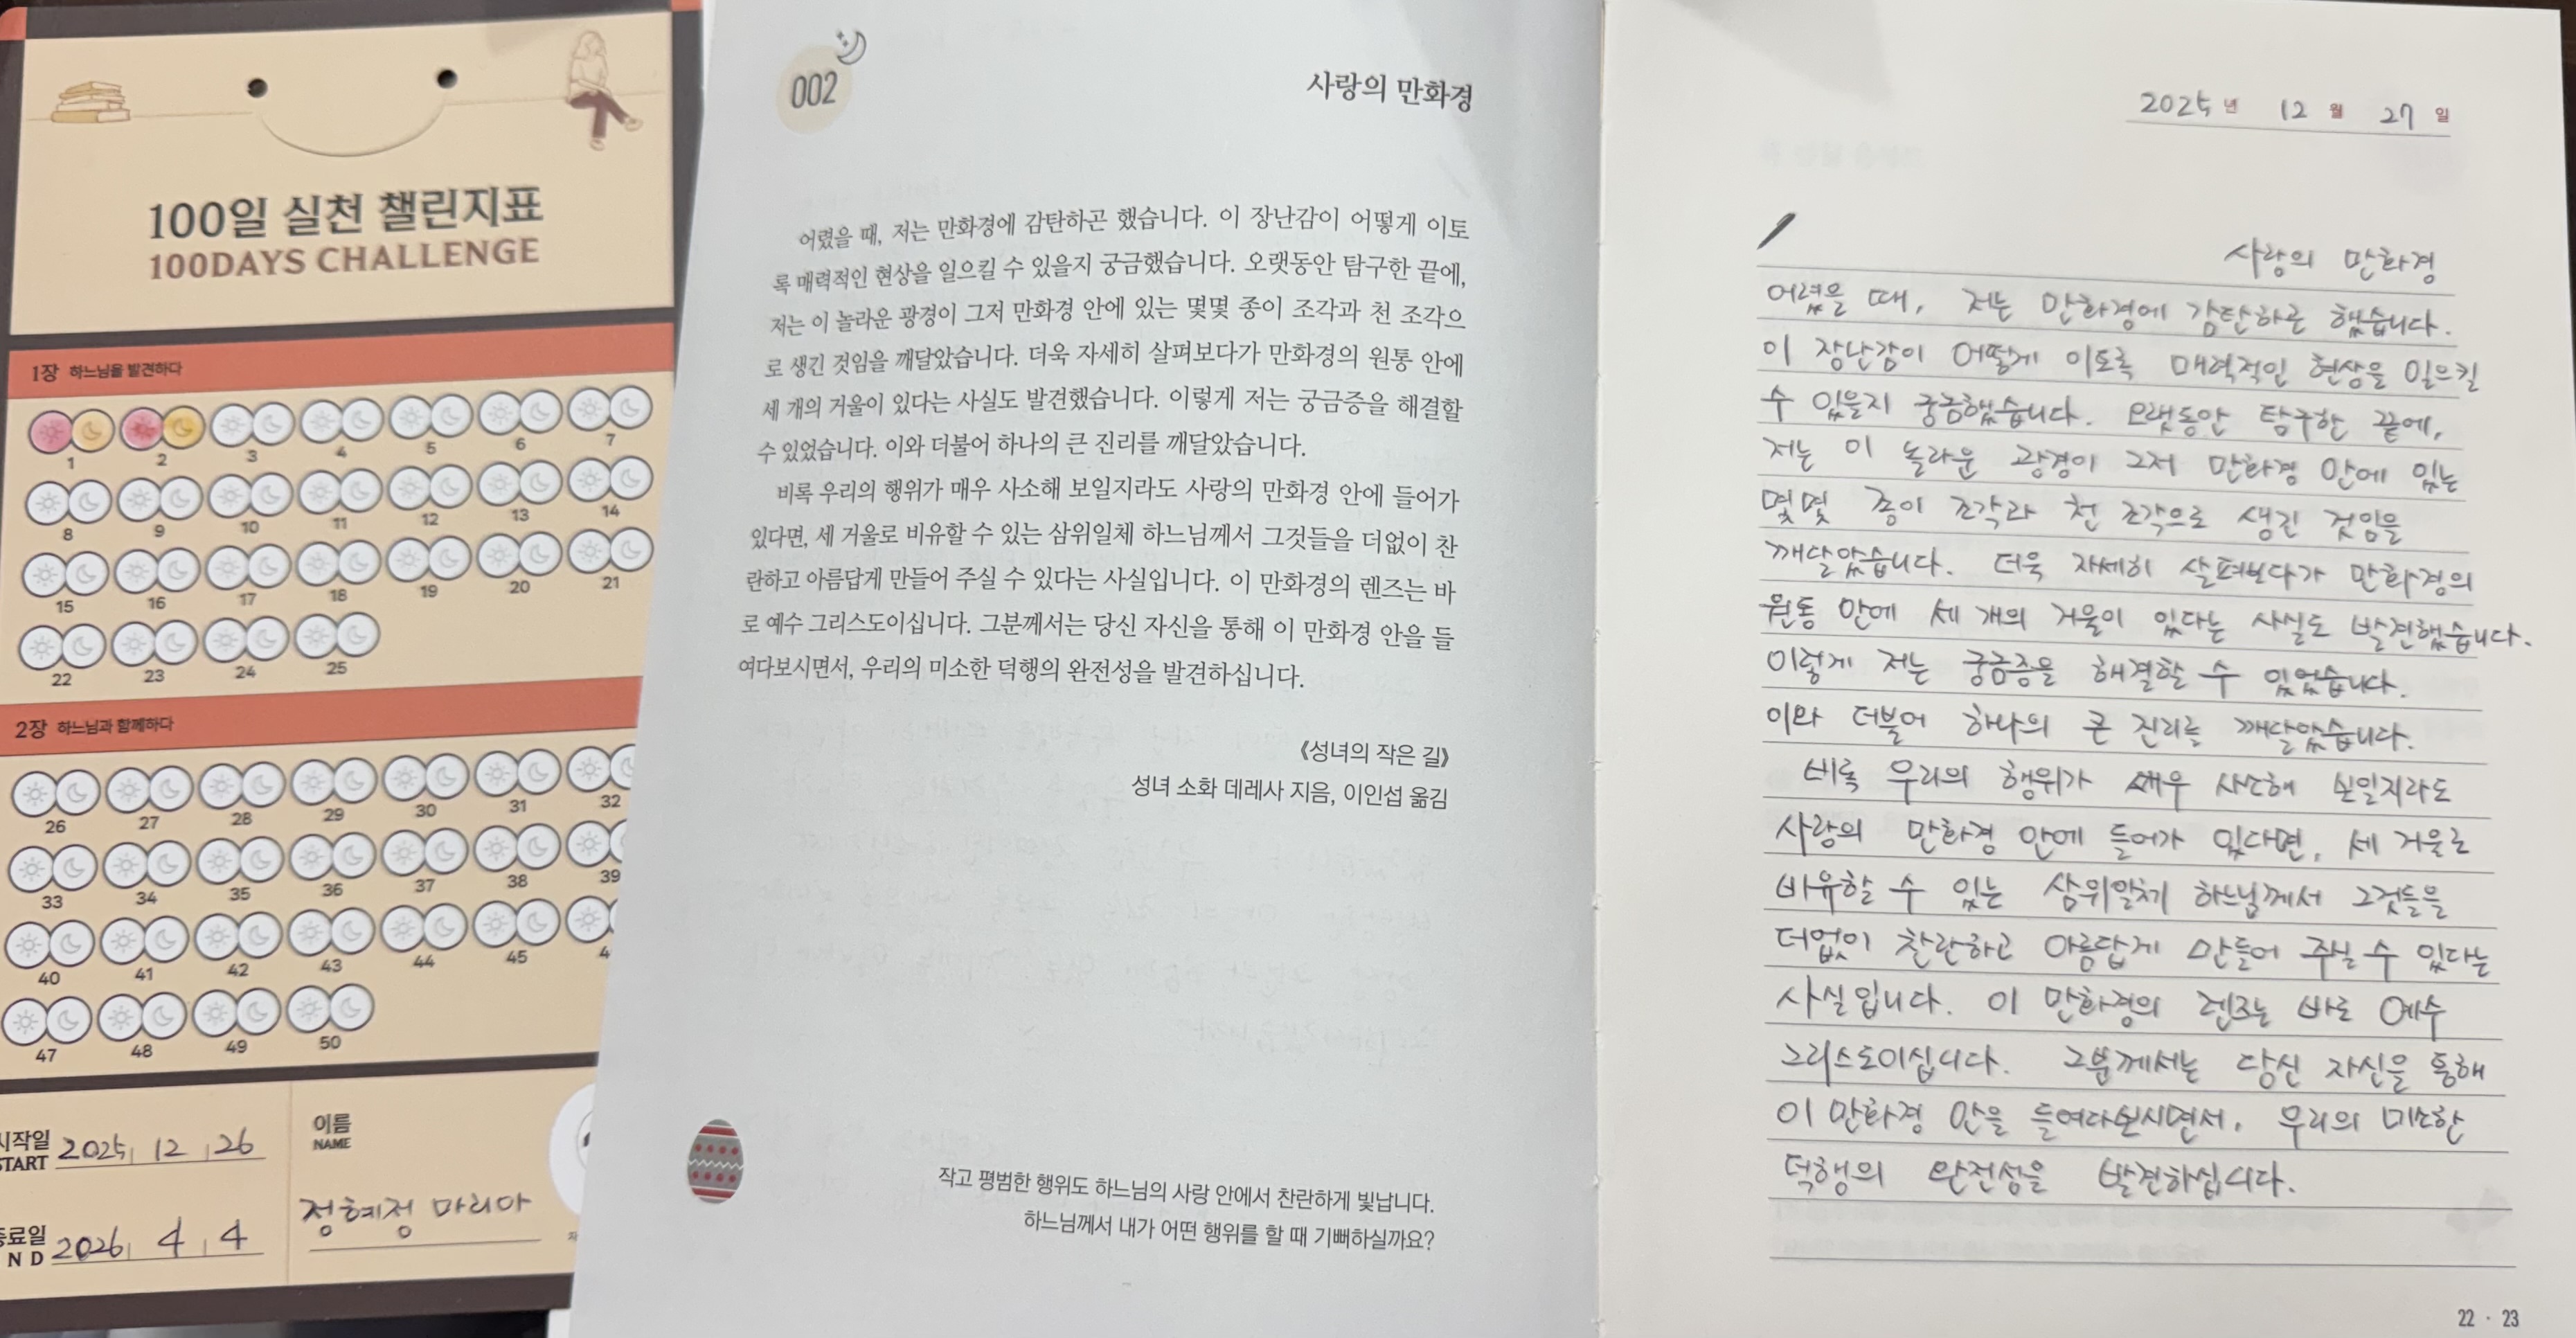 100일 실천 챌린지표
100DAYS CHALLENGE
1장 하느님을 발견하다
1 2 3 4 5 6 7
8 9 10 11 12 13 14
15 16 17 18 19 20 21
22 23 24 25
2장 하느님과 함께하다
26 27 28 29 30 31 32
33 34 35 36 37 38 39
40 41 42 43 44 45
47 48 49 50
시작일 2025 12 26
START
종료일 2026 4 4
END
이름
NAME
정혜정 마리아
002
사랑의 만화경
어렸을 때, 저는 만화경에 감탄하곤 했습니다. 이 장난감이 어떻게 이토
록 매력적인 현상을 일으킬 수 있을지 궁금했습니다. 오랫동안 탐구한 끝에,
저는 이 놀라운 광경이 그저 만화경 안에 있는 몇몇 종이 조각과 천 조각으
로 생긴 것임을 깨달았습니다. 더욱 자세히 살펴보다가 만화경의 원통 안에
세 개의 거울이 있다는 사실도 발견했습니다. 이렇게 저는 궁금증을 해결할
수 있었습니다. 이와 더불어 하나의 큰 진리를 깨달았습니다.
비록 우리의 행위가 매우 사소해 보일지라도 사랑의 만화경 안에 들어가
있다면, 세 거울로 비유할 수 있는 삼위일체 하느님께서 그것들을 더없이 찬
란하고 아름답게 만들어 주실 수 있다는 사실입니다. 이 만화경의 렌즈는 바
로 예수 그리스도이십니다. 그분께서는 당신 자신을 통해 이 만화경 안을 들
여다보시면서, 우리의 미소한 덕행의 완전성을 발견하십니다.
《성녀의 작은 길》
성녀 소화 데레사 지음, 이인섭 옮김
작고 평범한 행위도 하느님의 사랑 안에서 찬란하게 빛납니다.
하느님께서 내가 어떤 행위를 할 때 기뻐하실까요?
2025년 12월 27일
사랑의 만화경
어렸을 때, 저는 만화경에 감탄하곤 했습니다.
이 장난감이 어떻게 이토록 매력적인 현상을 일으킬
수 있을지 궁금했습니다. 오랫동안 탐구한 끝에,
저는 이 놀라운 광경이 그저 만화경 안에 있는
몇몇 종이 조각과 천 조각으로 생긴 것임을
깨달았습니다. 더욱 자세히 살펴보다가 만화경의
원통 안에 세 개의 거울이 있다는 사실도 발견했습니다.
이렇게 저는 궁금증을 해결할 수 있었습니다.
이와 더불어 하나의 큰 진리를 깨달았습니다.
비록 우리의 행위가 매우 사소해 보일지라도
사랑의 만화경 안에 들어가 있다면, 세 거울로
비유할 수 있는 삼위일체 하느님께서 그것들을
더없이 찬란하고 아름답게 만들어 주실 수 있다는
사실입니다. 이 만화경의 렌즈는 바로 예수
그리스도이십니다. 그분께서는 당신 자신을 통해
이 만화경 안을 들여다보시면서, 우리의 미소한
덕행의 완전성을 발견하십니다.
22 · 23